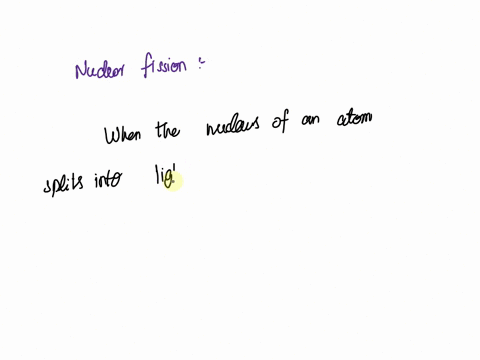 Nuclear fission :
When the nucleus of an atom
splits into lig